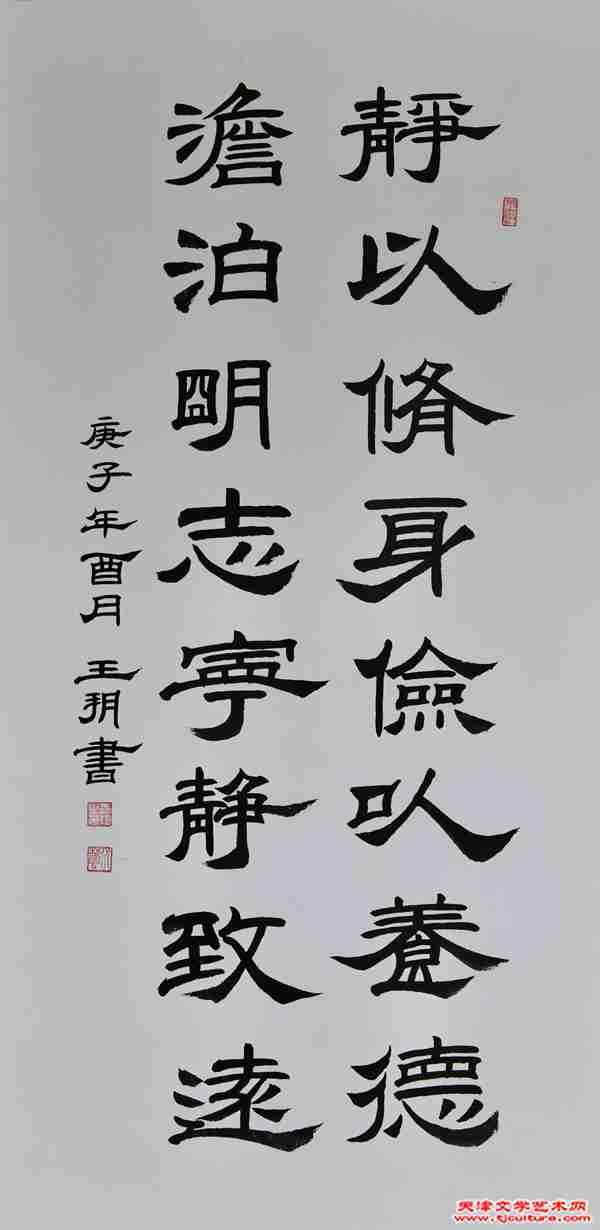 靜以脩身儉以養德
澹泊明志寧靜致遠
庚子年酉月 王玥書
天津文学艺术网
www.tjculture.com